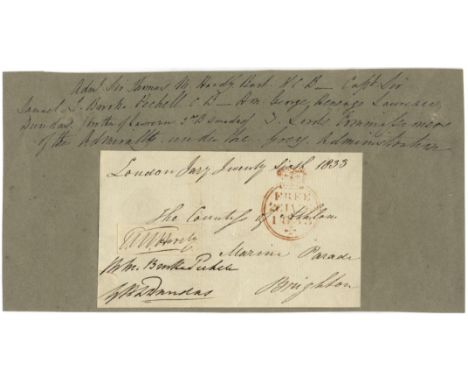 Adml Sir Thomas M Hardy Bart KCB — Capt Sir
Samuel J. Brooke Pechell CB — Hon George Heneage Lawrence
Dundas, (brother of Lawrence 2nd B Dundas) 3 Lords Commissioners
of the Admiralty under the Grey Administration
London Jany Twenty sixth 1833
FREE
1833
The Countess of Athlone
TM Hardy
Marine Parade
Brooke Pechell
Brighton
Dundas